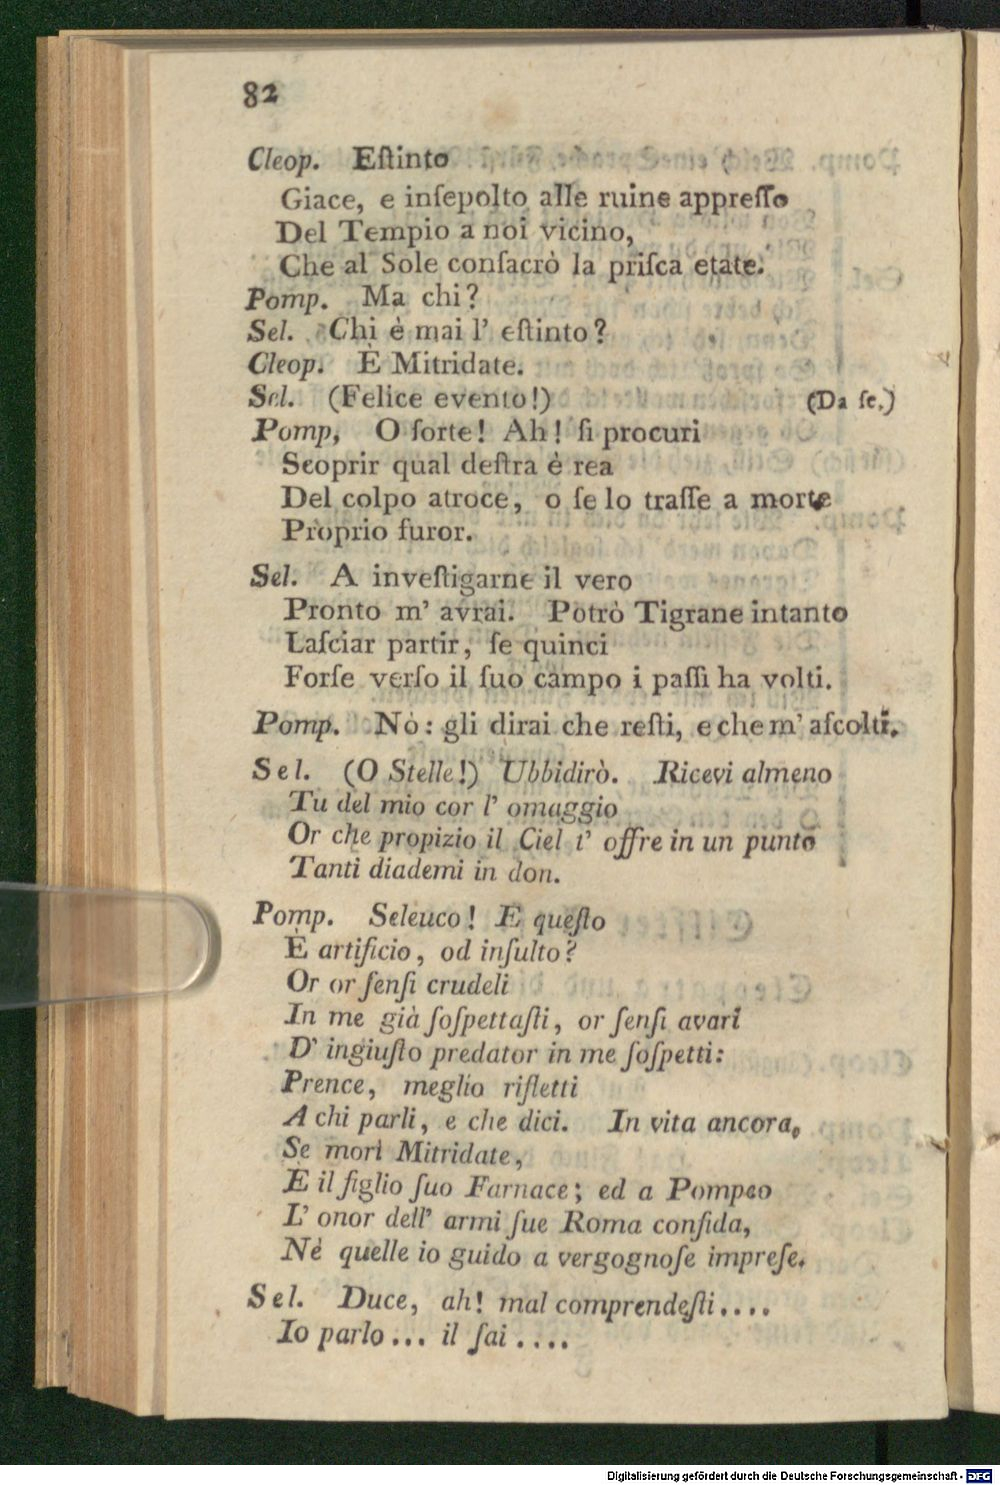 82
Cleop. Eſtinto
Giace, e inſepolto alle ruine appreſſo
Del Tempio a noi vicino,
Che al Sole conſacrò la priſca etate.
Pomp. Ma chi?
Sel. Chi è mai l' eſtinto?
Cleop. È Mitridate.
Sel. (Felice evento!) (Da ſe.)
Pomp, O ſorte! Ah! ſi procuri
Scoprir qual deſtra è rea
Del colpo atroce, o ſe lo traſſe a morte
Proprio furor.
Sel. A inveſtigarne il vero
Pronto m' avrai. Potrò Tigrane intanto
Laſciar partir, ſe quinci
Forſe verſo il ſuo campo i paſſi ha volti.
Pomp. Nò: gli dirai che reſti, e che m' aſcolti.
Sel. (O Stelle!) Ubbidirò. Ricevi almeno
Tu del mio cor l' omaggio
Or che propizio il Ciel t' offre in un punto
Tanti diademi in don.
Pomp. Seleuco! E queſto
È artificio, od inſulto?
Or or ſenſi crudeli
In me già ſoſpettaſti, or ſenſi avari
D' ingiuſto predator in me ſoſpetti:
Prence, meglio rifletti
A chi parli, e che dici. In vita ancora,
Se morì Mitridate,
È il figlio ſuo Farnace; ed a Pompeo
L' onor dell' armi ſue Roma confida,
Nè quelle io guido a vergognoſe impreſe.
Sel. Duce, ah! mal comprendeſti....
Io parlo... il ſai....
Digitalisierung gefördert durch die Deutsche Forschungsgemeinschaft - DFG